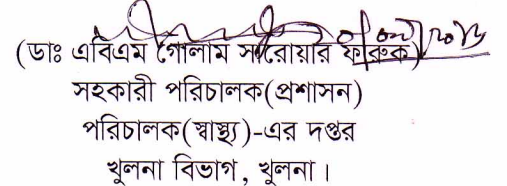 (ডাঃ এবিএম গোলাম সারোয়ার ফারুক)
সহকারী পরিচালক(প্রশাসন)
পরিচালক(স্বাস্থ্য)-এর দপ্তর
খুলনা বিভাগ, খুলনা।